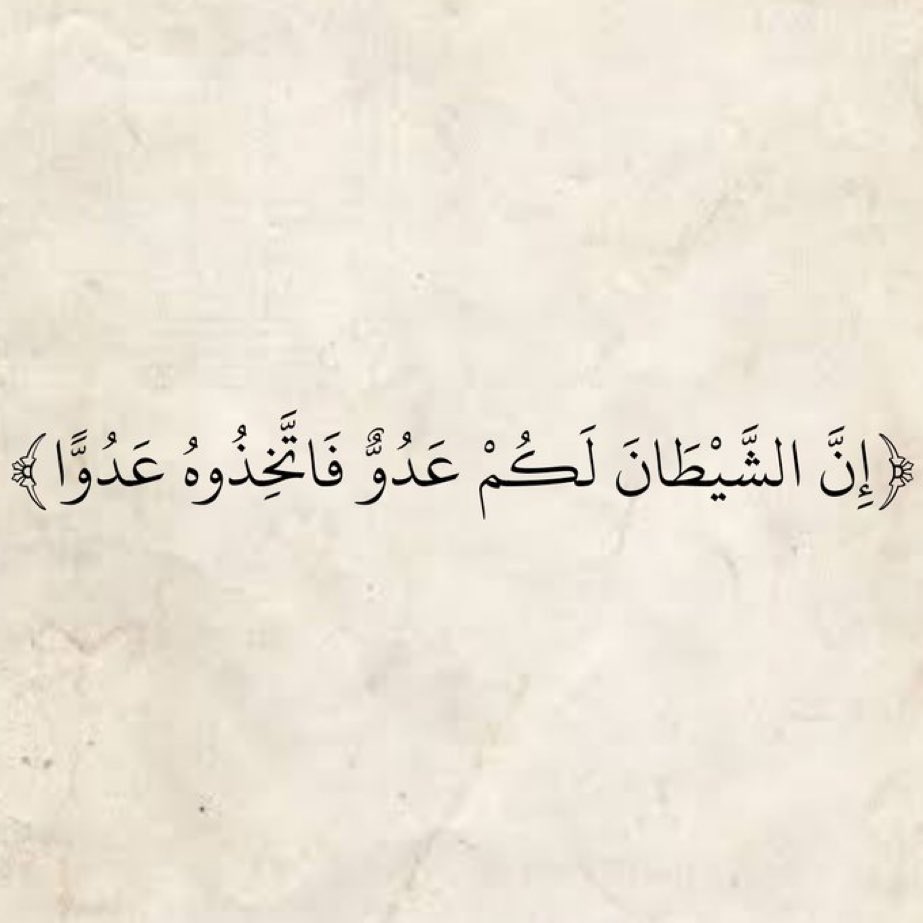 ﴿إِنَّ الشَّيْطَانَ لَكُمْ عَدُوٌّ فَاتَّخِذُوهُ عَدُوًّا﴾